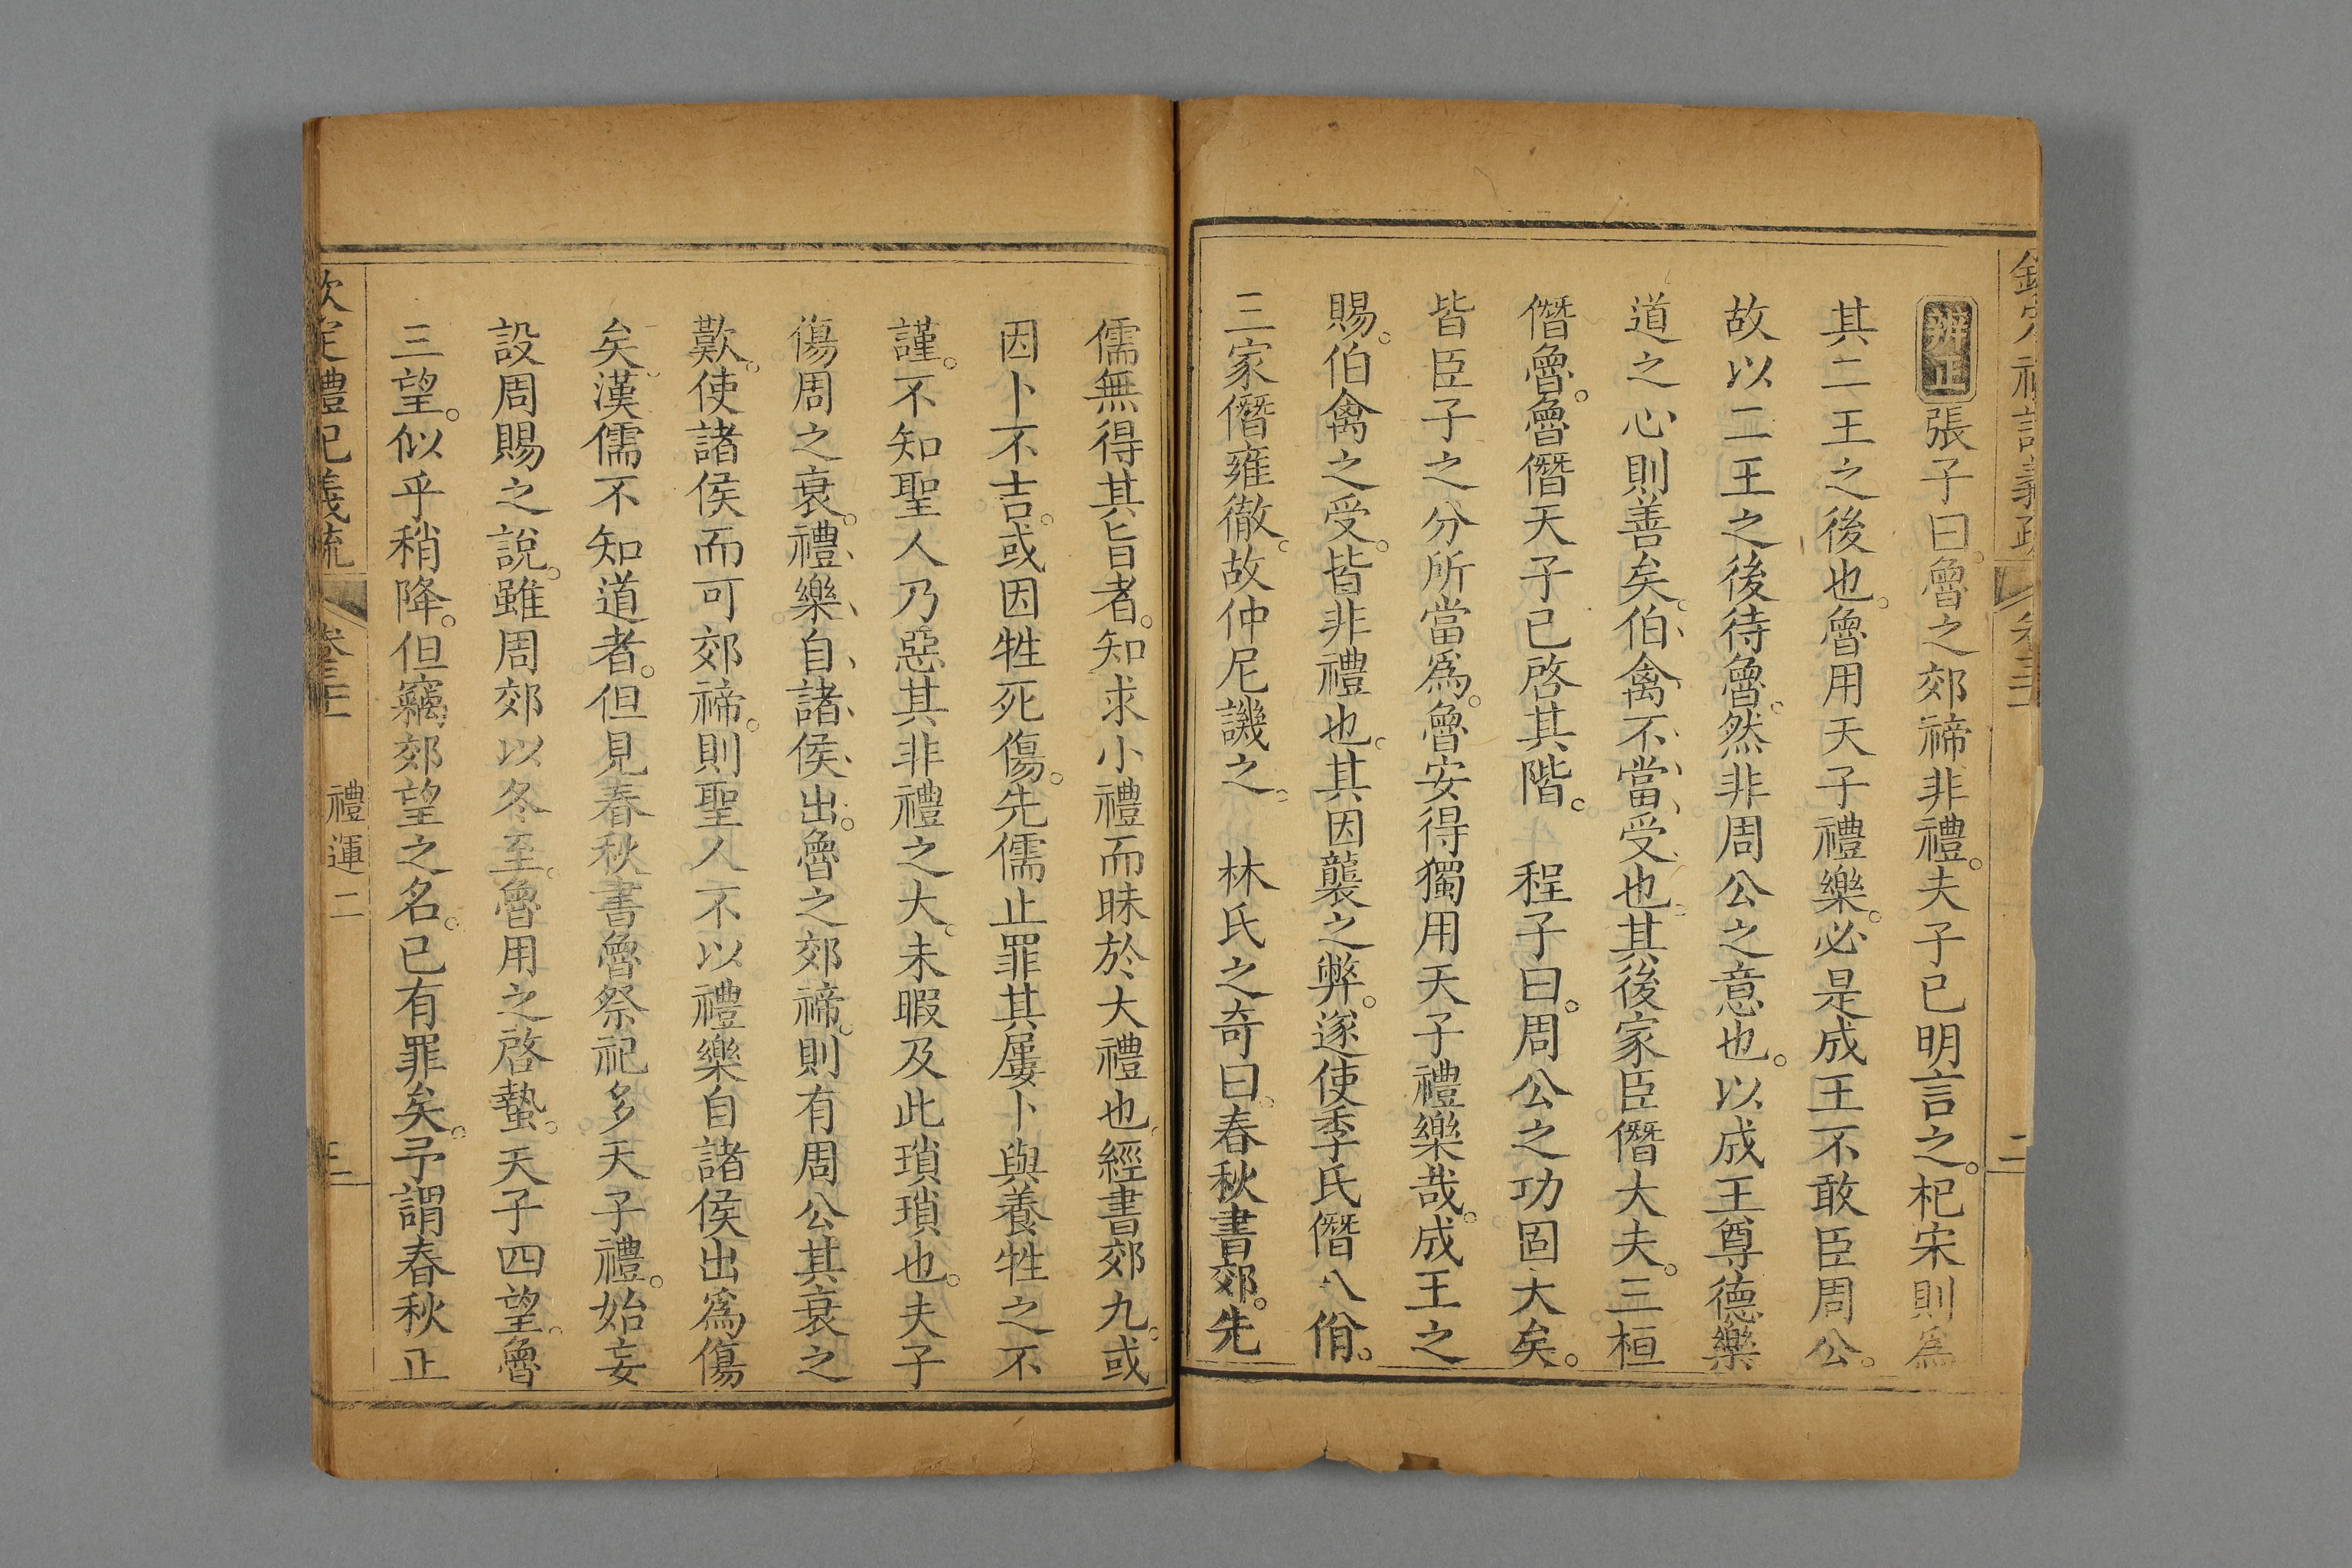 辨正張子曰。魯之郊禘非禮。夫子已明言之。杞宋則為
其二王之後也。魯用天子禮樂。必是成王不敢臣周公。
故以二王之後待魯。然非周公之意也。以成王尊德樂
道之心則善矣。伯禽不當受也。其後家臣僭大夫。三桓
僭魯。魯僭天子已啓其階。 程子曰。周公之功固大矣。
皆臣子之分所當為。魯安得獨用天子禮樂哉。成王之
賜。伯禽之受。皆非禮也。其因襲之弊。遂使季氏僭八佾。
三家僭雍徹。故仲尼譏之。 林氏之奇曰。春秋書郊。先
儒無得其旨者。知求小禮而昧於大禮也。經書郊九。或
因卜不吉。或因牲死傷。先儒止罪其屢卜與養牲之不
謹。不知聖人乃惡其非禮之大。未暇及此瑣瑣也。夫子
傷周之衰。禮樂自諸侯出。魯之郊禘。則有周公其衰之
歎。使諸侯而可郊禘。則聖人不以禮樂自諸侯出爲傷
矣。漢儒不知道者。但見春秋書魯祭祀多天子禮。始妄
設周賜之說。雖周郊以冬至。魯用之啓蟄。天子四望。魯
三望。似乎稍降。但竊郊望之名。已有罪矣。予謂春秋正
欽定禮記義疏 禮運二